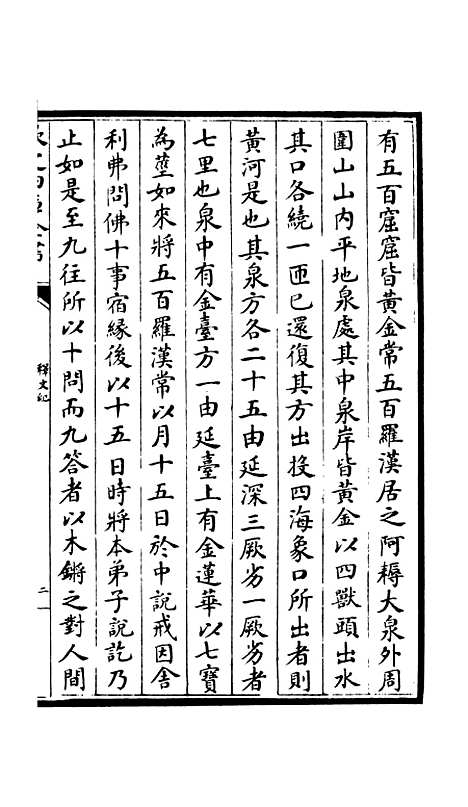 有五百窟窟皆黃金常五百羅漢居之阿耨大泉外周
圍山山内平地泉處其中泉岸皆黃金以四獸頭出水
其口各繞一匝已還復其方出投四海象口所出者則
黃河是也其泉方各二十五由延深三厥劣一厥劣者
七里也泉中有金臺方一由延臺上有金蓮華以七寶
為莖如來將五百羅漢常以月十五日於中說戒因舍
利弗問佛十事宿緣後以十五日時將本弟子說訖乃
止如是至九往所以十問而九答者以木鏘之對人間
釋文紀
二